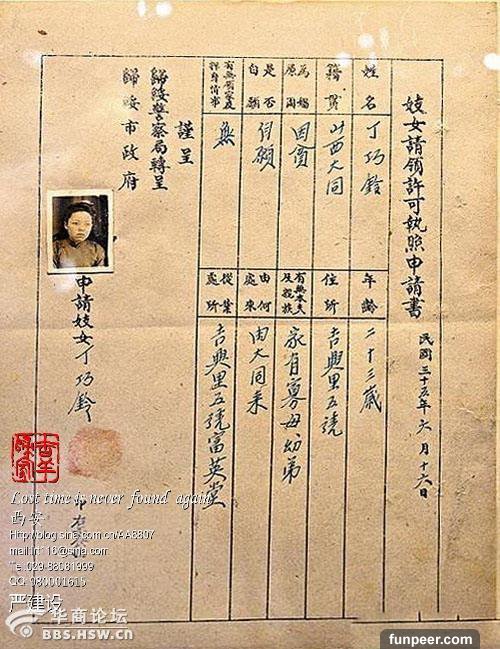 妓女請領許可執照申請書
民國三十五年六月十六日
姓名 丁巧鈴
年齡 二十三歲
籍貫 山西大同
住所 吉興里五號
為娼原因 因貧
有無本夫及親族 家有寡母幼弟
是否自願 自願
由何處來 由大同來
無
從業處所 吉興里五號富英堂
謹呈
歸綏警察局轉呈
歸綏市政府
申請妓女丁巧鈴
Lost time is never found again
西安
Http://blog.sina.com.cn/AA8807
Te 029-88081999
QQ 980001615
严建设
华商论坛
BBS.HSW.CN
funpeer.com